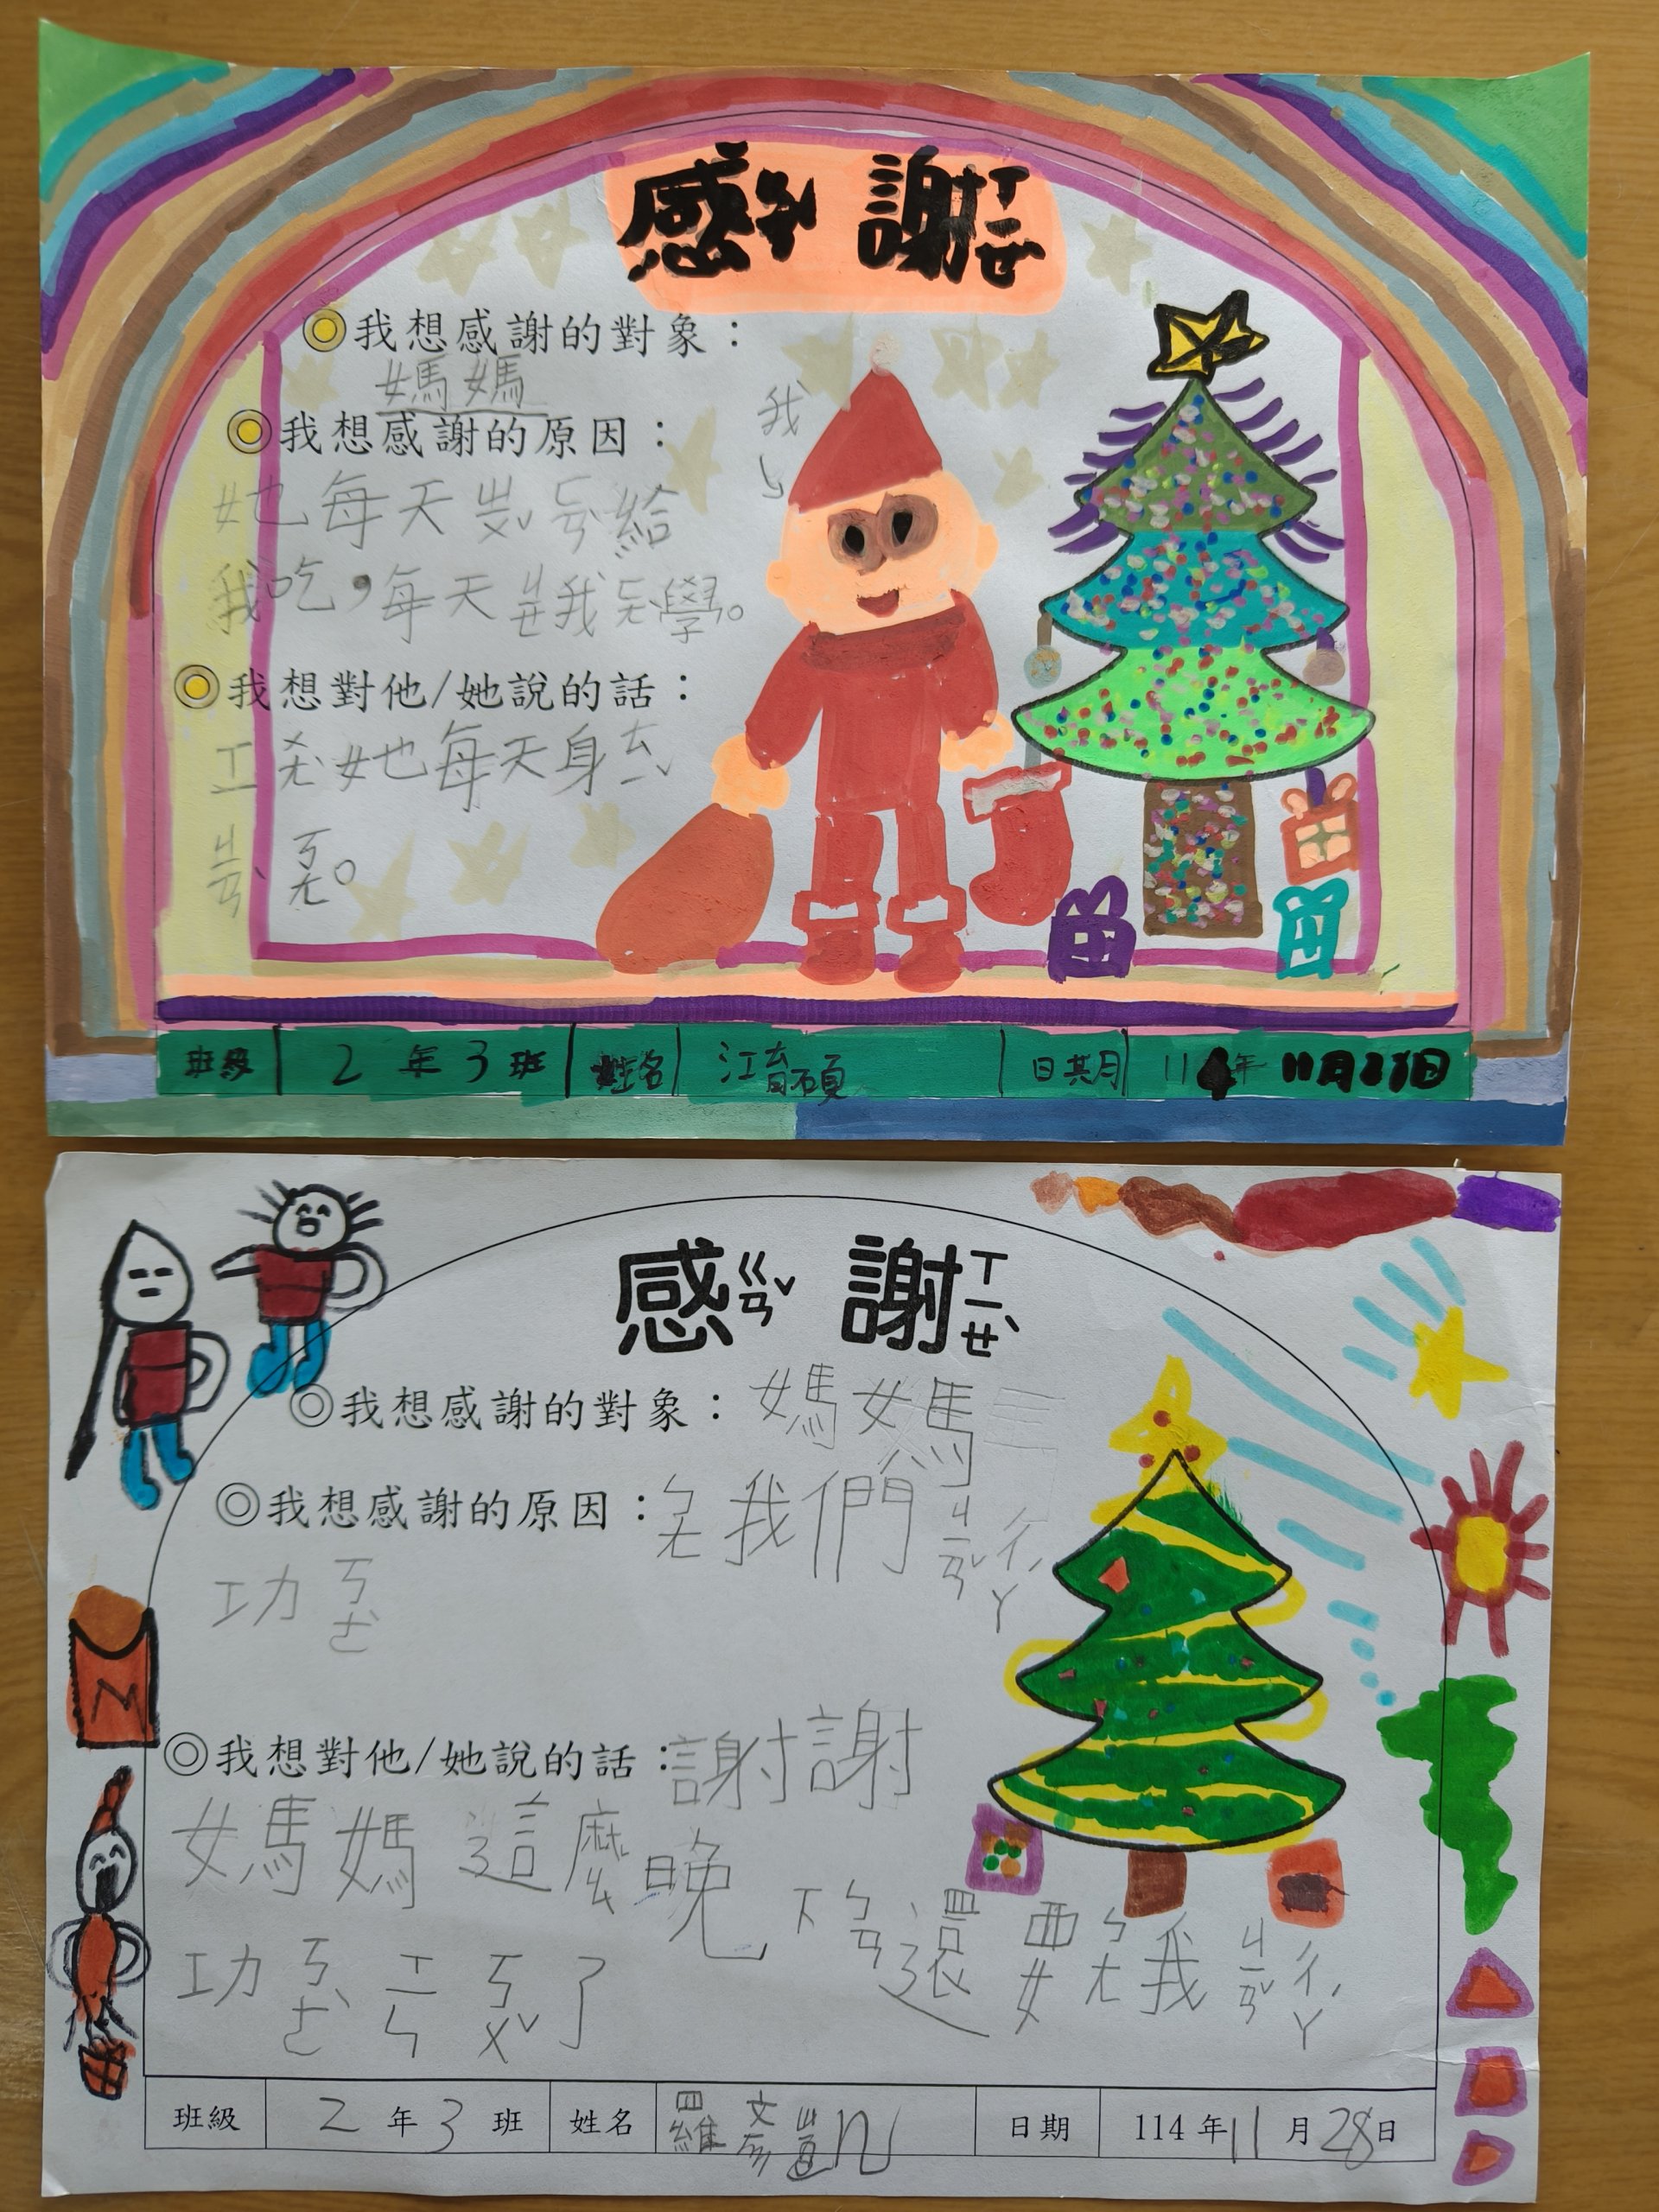 感ㄍㄢˇ 謝ㄒㄧㄝˋ
◎我想感謝的對象：
媽媽
◎我想感謝的原因：
我
她每天ㄓㄨˇㄘㄢ給
我吃，每天ㄐㄧㄝ我ㄈㄤˋ學。
◎我想對他/她說的話：
ㄒㄧ ㄨㄤˋ她每天身ㄊㄧˇ
ㄐㄧㄢˋ ㄎㄤ。
班級 2 年 3 班 姓名 江育碩 日期 114年 11月28日
感ㄍㄢˇ 謝ㄒㄧㄝˋ
◎我想感謝的對象：媽媽
◎我想感謝的原因：ㄅㄤ我們ㄐㄧㄢˇㄔㄚˊ
功ㄎㄜˋ
◎我想對他/她說的話：謝謝
媽媽 這麼晚
不ㄉㄢˋ還要ㄅㄤ我ㄐㄧㄢˇㄔㄚˊ
功ㄎㄜˋ ㄒㄧㄣ ㄎㄨˇ了
班級 2 年 3 班 姓名 羅 日期 114 年 11 月 28 日